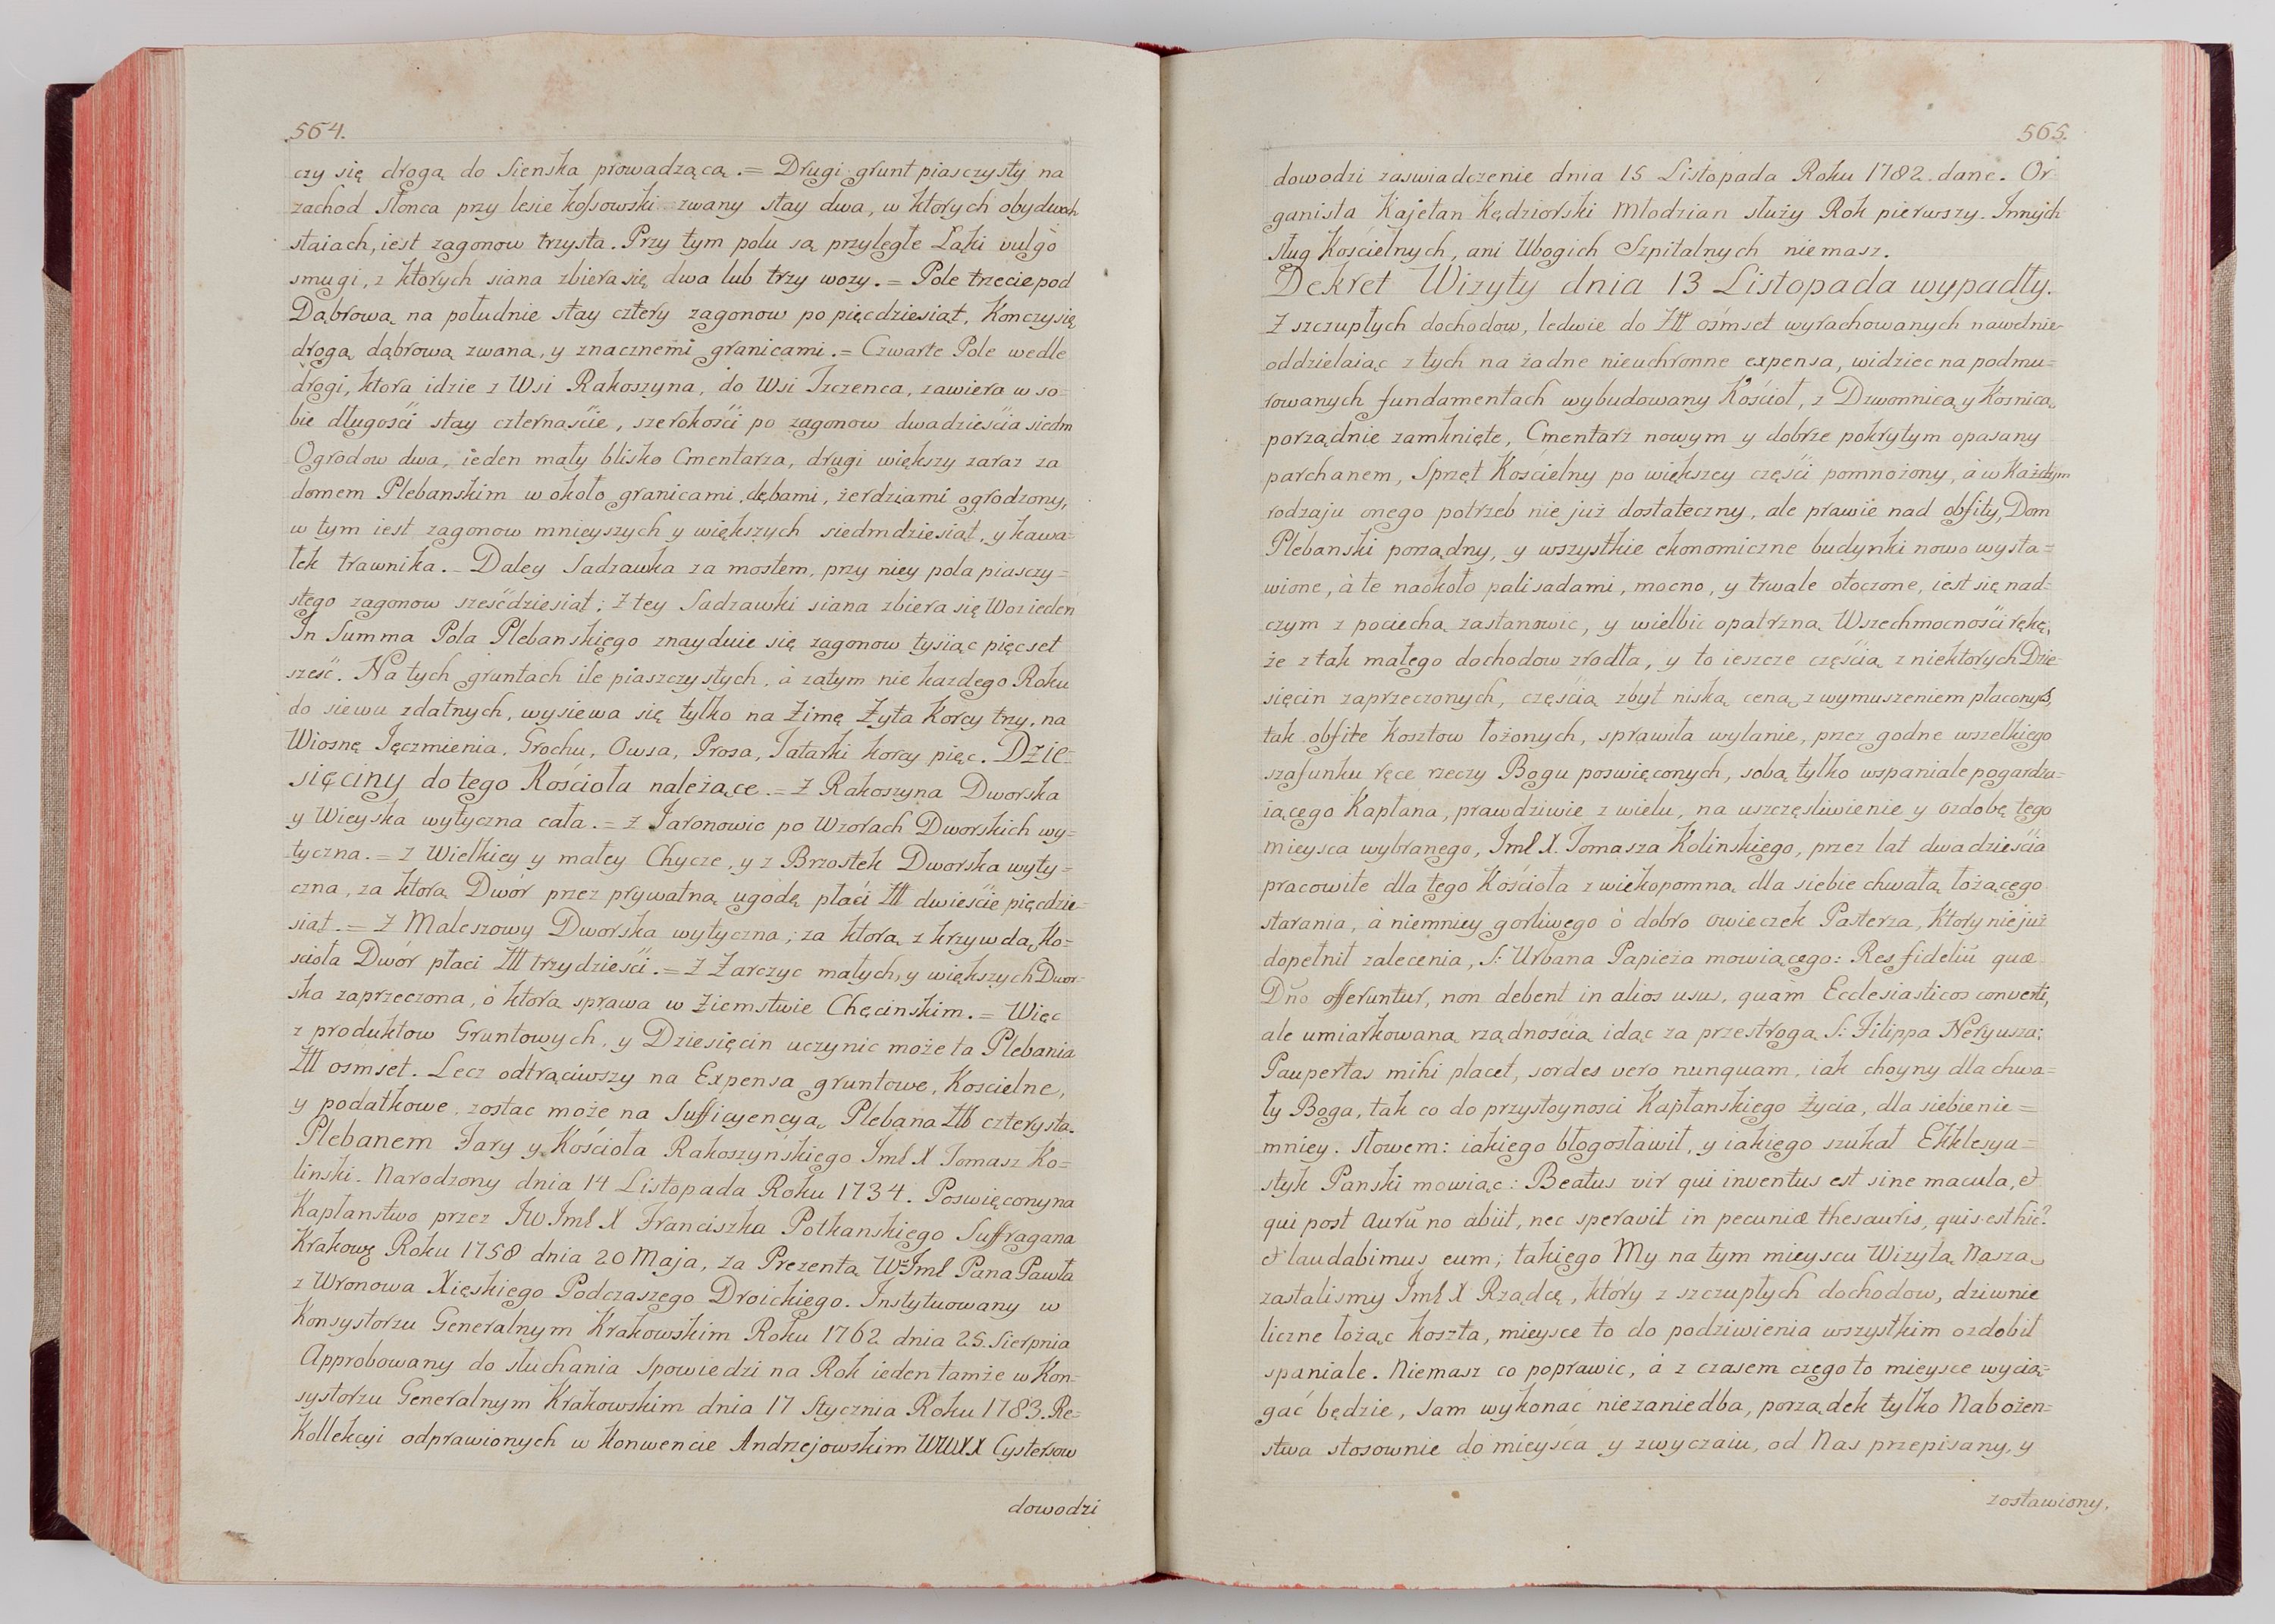 564.
czy się drogą do Sienska prowadzącą. = Drugi grunt piasczysty na
zachod słonca przy lesie kossowski zwany stay dwa, w ktorych obydwoch
staiach, iest zagonow trzysta. Przy tym polu są przyległe Łąki vulgò
smugi, z ktorych siana zbiera się dwa lub trzy wozy. = Pole trzecie pod
Dąbrową na południe stay cztery zagonow po pięcdziesiąt, Konczy się
drogą dąbrową zwana, y znacznemi granicami. = Czwarte Pole wedle
drogi, ktora idzie z Wsi Rakoszyna, do Wsi Jzczenca, zawiera w so=
bie długości stay czternaście, szerokości po zagonow dwadzieścia siedm
Ogrodow dwa, ieden mały blisko Cmentarza, drugi większy zaraz za
domem Plebanskim w około granicami, dębami, żerdziami ogrodzony,
w tym iest zagonow mnieyszych y większych siedmdziesiąt, y kawa=
łek trawnika. _ Daley Sadzawka za mostem, przy niey pola piasczy=
stego zagonow sześćdziesiat; z tey Sadzawki siana zbiera się Woz ieden
In Summa Pola Plebanskiego znayduie się zagonow tysiąc pięcset
sześć. Na tych gruntach ile piaszczystych, à zatym nie kazdego Roku
do siewu zdatnych, wysiewa się tylko na Zimę Żyta Korcy trzy, na
Wiosnę Jęczmienia, Grochu, Owsa, Prosa, Tatarki korcy pięc. Dzie=
sięciny do tego Kościoła należące. = Z Rakoszyna Dworska
y Wieyska wytyczna cała. = Z Jaronowic po Wzorach Dworskich wy=
tyczna. = z Wielkiey y małey Chycze, y z Brzostek Dworska wyty=
czna, za ktorą Dwór przez prywatną ugodę płaci Złł dwieście pięcdzie=
siąt. = Z Maleszowy Dworska wytyczna; za ktorą z krzywdą Ko=
scioła Dwór płaci Złł trzydzieści. = Z Zarczyc małych, y większych Dwor=
ska zaprzeczona, ò ktorą sprawa w Ziemstwie Chęcinskim. = Więc
z produktow Gruntowych, y Dziesięcin uczynic może ta Plebania
Złł osmset. Lecz odtrąciwszy na Expensa gruntowe, Koscielne,
y podatkowe, zostac może na Sufficyencyą Plebana Złł czterysta.
Plebanem Fary y Kościoła Rakoszyńskiego Jmł X Tomasz Ko=
linski. Narodzony dnia 14 Listopada Roku 1734. Poswięcony na
Kapłanstwo przez JW Jmł X Franciszka Potkanskiego Suffragana
Krakowg Roku 1758 dnia 20 Maja, za Prezentą W. Jmł Pana Pawła
z Wronowa Xięskiego Podczaszego Droickiego. Instytuowany w
Konsystorzu Generalnym Krakowskim Roku 1762 dnia 25. Sierpnia
Approbowany do słuchania Spowiedzi na Rok ieden tamże w Kon=
systorzu Generalnym Krakowskim dnia 17 Stycznia Roku 1783. Re=
Kollekcyi odprawionych w Konwencie Andrzejowskim WWXX Cystersow
dowodzi
565.
dowodzi zaswiadczenie dnia 15 Listopada Roku 1782. dane. Or=
ganista Kajetan Kędziorski Młodzian służy Rok pierwszy. Innych
sług Kościelnych, ani Ubogich Szpitalnych niemasz.
Dekret Wizyty dnia 13 Listopada wypadły.
Z szczupłych dochodow, ledwie do Złł ośmset wyrachowanych nawet nie
oddzielaiąc z tych na żadne nieuchronne expensa, widziec na podmu=
rowanych fundamentach wybudowany Kościoł, z Dzwonnicą y Kosnicą
porządnie zamknięte, Cmentarz nowym y dobrze pokrytym opasany
parchanem, Sprzęt Kościelny po większey części pomnożony, à w każdym
rodzaju onego potrzeb nie już dostateczny, ale prawie nad obfity, Dom
Plebanski porządny, y wszystkie ekonomiczne budynki nowo wysta=
wione, à te naokoło palisadami, mocno, y trwale otoczone, iest się nad=
czym z pociechą zastanowic, y wielbic opatrzną Wszechmocności rękę,
że z tak małego dochodow zrodła, y to ieszcze częścią z niektorych Dzie=
sięcin zaprzeczonych, częścią zbyt niską ceną z wymuszeniem płaconych,
tak obfite Kosztow łożonych, sprawiła wylanie, przez godne wszelkiego
szafunku ręce rzeczy Bogu poswięconych, sobą tylko wspaniale pogardza=
iącego Kapłana, prawdziwie z wielu, na uszczęsliwienie y ozdobę tego
mieysca wybranego, Jmł X. Tomasza Kolinskiego, przez lat dwadzieścia
pracowite dla tego Kościoła z wiekopomną dla siebie chwałą łożącego
starania, à niemniey gorliwego ò dobro owieczek Pasterza, Ktory nie już
dopełnił zalecenia, S: Urbana Papieża mowiącego: Res fideliū quæ
Dño offeruntur, non debent in alios usus, quàm Ecclesiasticos converti,
ale umiarkowaną rządnością idąc za przestrogą S: Filippa Neryusza:
Paupertas mihi placet, sordes vero nunquam, iak choyny dla chwa=
ły Boga, tak co do przystoynosci Kapłanskiego Życia, dla siebie nie=
mniey. Słowem: iakiego błogosławił, y iakiego szukał Ekklesya=
styk Panski mowiąc: Beatus vir qui inventus est sine macula, et
qui post aurū no abiit, nec speravit in pecuniæ thesauris, quis est hic?
et laudabimus eum; takiego My na tym mieyscu Wizytą Naszą
zastalismy Jmł X Rządcę, który z szczupłych dochodow, dziwnie
liczne łożąc koszta, mieysce to do podziwienia wszystkim ozdobił
spaniale. Niemasz co poprawic, à z czasem czego to mieysce wycią=
gać będzie, sam wykonać niezaniedba, porządek tylko Nabożen=
stwa stosownie do mieysca y zwyczaiu, od Nas przepisany, y
zostawiony,